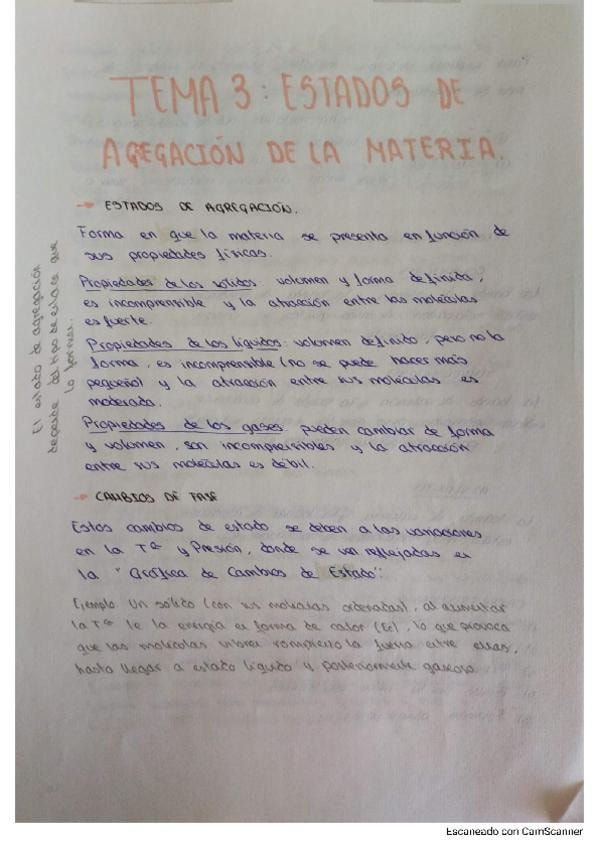 TEMA 3: ESTADOS DE
AGEGACIÓN DE LA MATERIA.
→ ESTADOS DE AGREGACIÓN.
Forma en que la materia se presenta en función de
sus propiedades físicas.
Propiedades de los sólidos: volumen y forma definida,
es incomprensible y la atracción entre las moléculas
es fuerte.
Propiedades de los líquidos: volumen definido, pero no la
forma, es incomprensible (no se puede hacer más
pequeño) y la atracción entre sus moléculas es
moderada.
Propiedades de los gases pueden cambiar de forma
y volumen, son y la atracción
entre sus moléculas es débil.
El estado de agregación
depende del tipo de enlace que
lo forman.
→ CAMBIOS DE FASE
Estos cambios de estado se deben a las variaciones
en la Tª y Presión, donde se ven reflejadas en
la "Gráfica de Cambios de Estado":
Ejemplo Un sólido (con sus moléculas ordenadas), al aumentar
la Tª le la energía en forma de calor (Ec), lo que provoca
que las moléculas vibren rompiendo la fuerza entre ellas,
hasta llegar a estado líquido y posteriormente gaseoso.
Escaneado con CamScanner